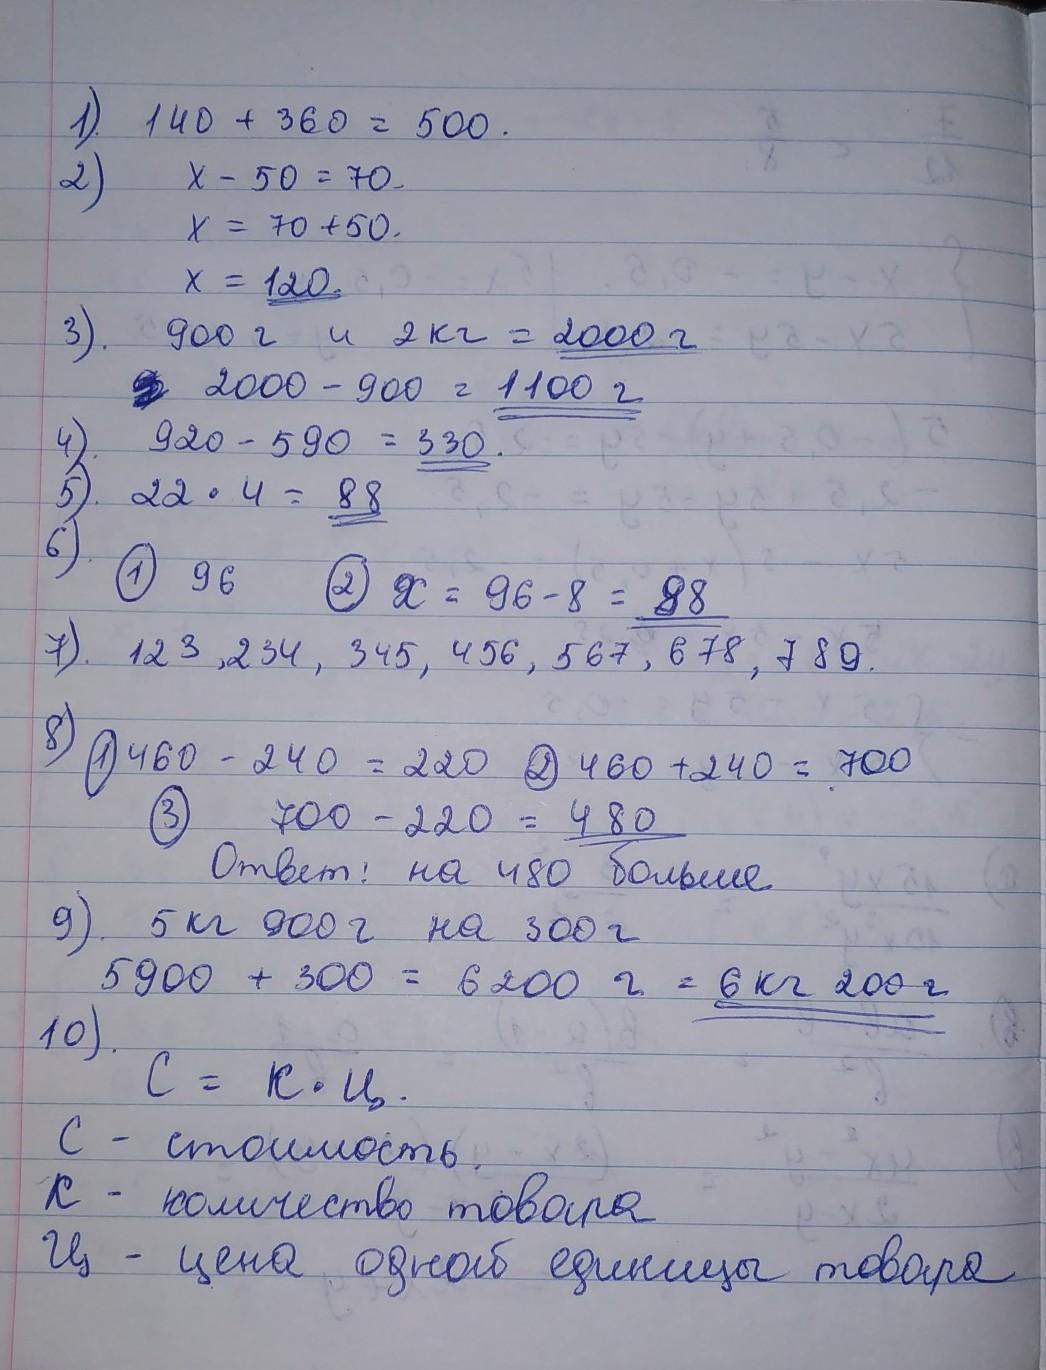 1). 140 + 360 = 500.
2) x - 50 = 70.
x = 70 + 50.
x = 120.
3). 900 г и 2 кг = 2000 г
2000 - 900 = 1100 г
4). 920 - 590 = 330.
5). 22 · 4 = 88
6). ① 96 ② x = 96 - 8 = 88
7). 123, 234, 345, 456, 567, 678, 789.
8) ① 460 - 240 = 220 ② 460 + 240 = 700
③ 700 - 220 = 480
Ответ: на 480 больше
9). 5 кг 900 г на 300 г
5900 + 300 = 6200 г = 6 кг 200 г
10).
С = К · Ц.
С - стоимость.
К - количество товара
Ц - цена одной единицы товара